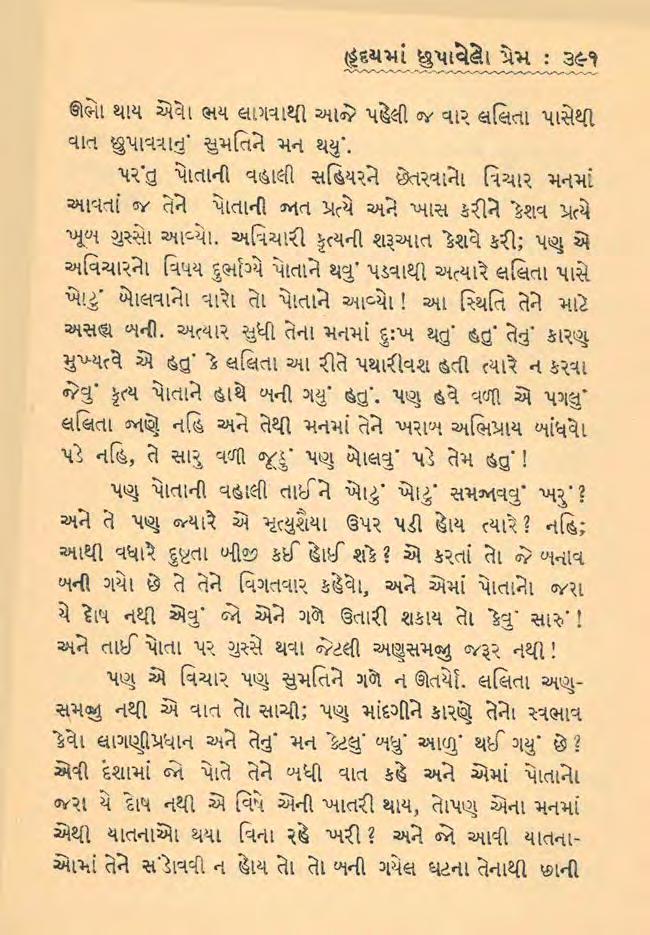 હૃદયમાં છુપાવેલો પ્રેમ : ૩૯૧
ઊભો થાય એવો ભય લાગવાથી આજે પહેલી જ વાર લલિતા પાસેથી
વાત છુપાવવાનું સુમતિને મન થયું.
પરંતુ પોતાની વહાલી સહિયરને છેતરવાનો વિચાર મનમાં
આવતાં જ તેને પોતાની જાત પ્રત્યે અને ખાસ કરીને કેશવ પ્રત્યે
ખૂબ ગુસ્સો આવ્યો. અવિચારી કૃત્યની શરૂઆત કેશવે કરી; પણ એ
અવિચારનો વિષય દુર્ભાગ્યે પોતાને થવું પડવાથી અત્યારે લલિતા પાસે
ખોટું બોલવાનો વારો તો પોતાને આવ્યો! આ સ્થિતિ તેને માટે
અસહ્ય બની. અત્યાર સુધી તેના મનમાં દુઃખ થતું હતું તેનું કારણ
મુખ્યત્વે એ હતું કે લલિતા આ રીતે પથારીવશ હતી ત્યારે ન કરવા
જેવું કૃત્ય પોતાને હાથે બની ગયું હતું. પણ હવે વળી એ પગલું
લલિતા જાણે નહિ અને તેથી મનમાં તેને ખરાબ અભિપ્રાય બાંધવો
પડે નહિ, તે સારુ વળી જૂઠું પણ બોલવું પડે તેમ હતું!
પણ પોતાની વહાલી તાઈને ખોટું ખોટું સમજાવવું ખરું?
અને તે પણ જ્યારે એ મૃત્યુશૈયા ઉપર પડી હોય ત્યારે? નહિ;
આથી વધારે દુષ્ટતા બીજી કઈ હોઈ શકે? એ કરતાં તો જે બનાવ
બની ગયો છે તે તેને વિગતવાર કહેવો, અને એમાં પોતાનો જરા
યે દોષ નથી એવું જો એને ગળે ઉતારી શકાય તો કેવું સારું!
અને તાઈ પોતા પર ગુસ્સે થવા જેટલી અણસમજી જરૂર નથી!
પણ એ વિચાર પણ સુમતિને ગળે ન ઊતર્યો. લલિતા અણ-
સમજી નથી એ વાત તો સાચી; પણ માંદગીને કારણે તેનો સ્વભાવ
કેવો લાગણીપ્રધાન અને તેનું મન કેટલું બધું આળું થઈ ગયું છે?
એવી દશામાં જો પોતે તેને બધી વાત કહે અને એમાં પોતાનો
જરા યે દોષ નથી એ વિષે એની ખાતરી થાય, તોપણ એના મનમાં
એથી યાતનાઓ થયા વિના રહે ખરી? અને જો આવી યાતના-
ઓમાં તેને સંડોવવી ન હોય તો તો બની ગયેલ ઘટના તેનાથી છાની